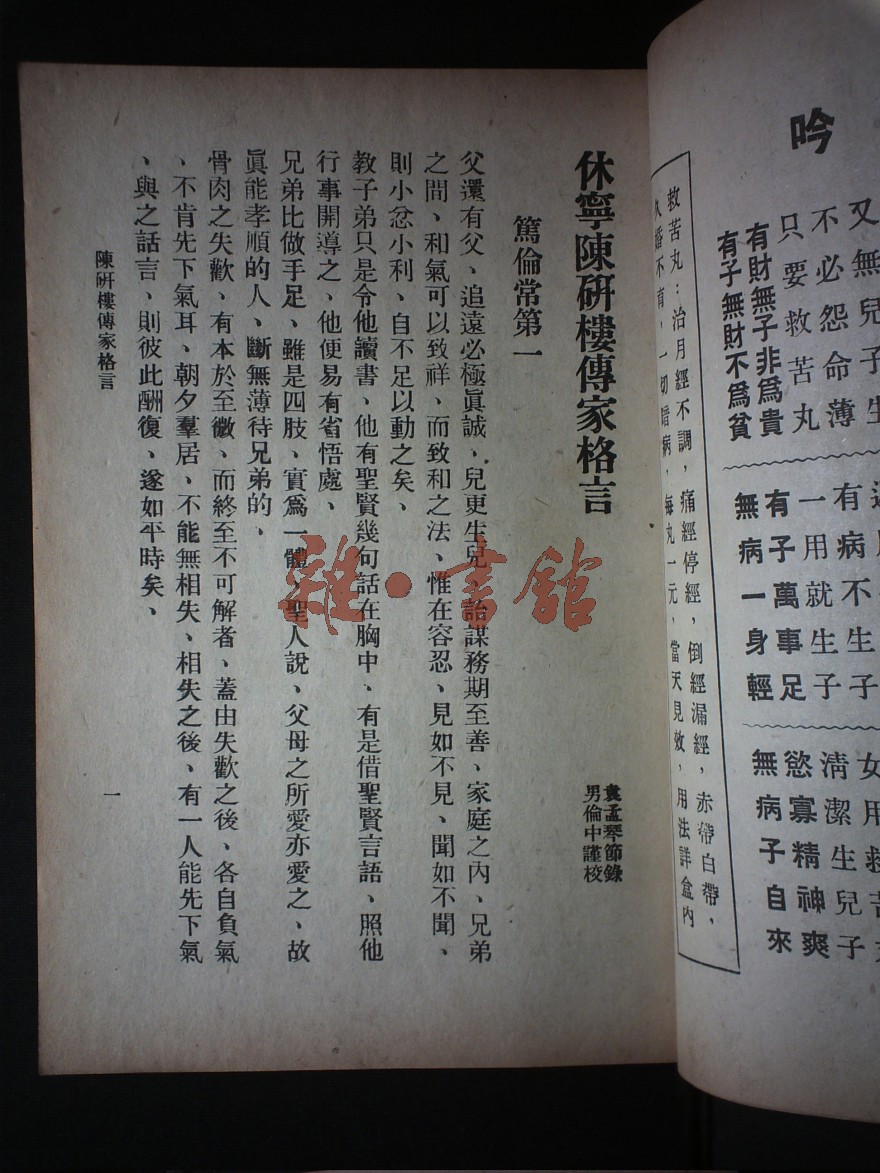 吟
又無兒子生
不必怨命薄
只要救苦丸
有財無子非為貴
有子無財不為貧
有病不生子
一用就生子
有子萬事足
無病一身輕
清潔生兒子
慾寡精神爽
無病子自來
救苦丸：治月經不調，痛經停經，倒經漏經，赤帶白帶，
久婚不育，一切暗病，每丸一元，當天見效，用法詳盒內
休寧陳研樓傳家格言
袁孟琴節錄
男倫中謹校
篤倫常第一
父還有父、追遠必極眞誠、兒更生兒、詒謀務期至善、家庭之內、兄弟
之間、和氣可以致祥、而致和之法、惟在容忍、見如不見、聞如不聞、
則小忿小利、自不足以動之矣、
教子弟只是令他讀書、他有聖賢幾句話在胸中、有是借聖賢言語、照他
行事開導之、他便易有省悟處、
兄弟比做手足、雖是四肢、實爲一體、聖人說、父母之所愛亦愛之、故
眞能孝順的人、斷無薄待兄弟的、
骨肉之失歡、有本於至微、而終至不可解者、蓋由失歡之後、各自負氣
、不肯先下氣耳、朝夕羣居、不能無相失、相失之後、有一人能先下氣
、與之話言、則彼此酬復、遂如平時矣、
陳研樓傳家格言
一
雜·書館